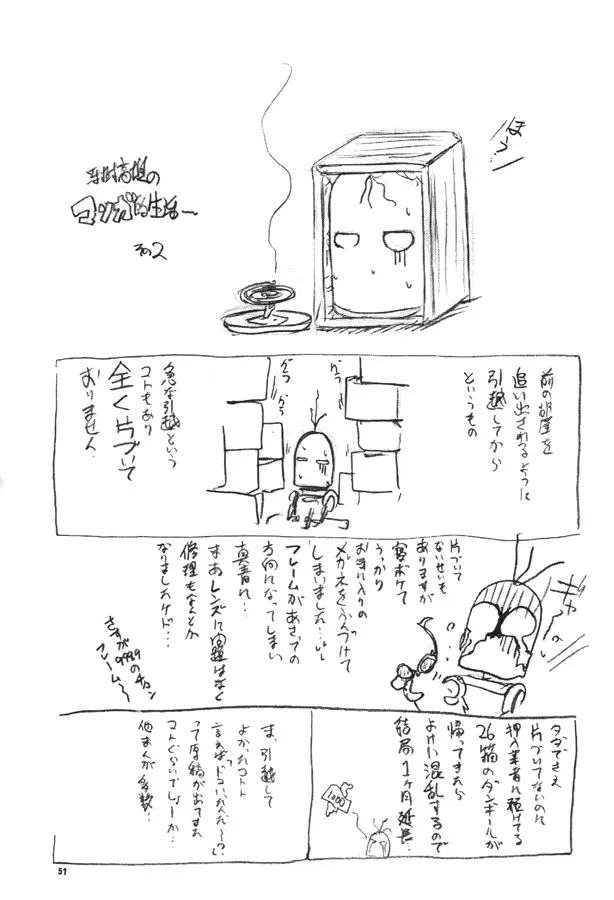 マンガ的生活〜
その2
ほう
前の部屋を
追い出されるように
引越してから
というもの
ガッ
ガッ
急な引越という
コトもあり
全く片づいて
おりません
ギャー
片づいて
ないせいも
ありますが
寝ボケて
うっかり
お気に入りの
メガネをふんづけて
しまいました…
フレームがあさっての
方向になってしまい
真青に…
まあレンズに問題はなく
修理もなんとか
なりましたケド…
さすが
999.9のチタン
フレーム〜
タダでさえ
片づいてないのに
押入業者に預けてる
26箱のダンボールが
帰ってきたら
よけい混乱するので
結局1ヶ月延長…
1000
ま、引越して
よかったコトと
言えば「ドコいかんだ〜!?」
って原稿が出てきた
コトぐらいでしょーか…
他まんが多数…
51